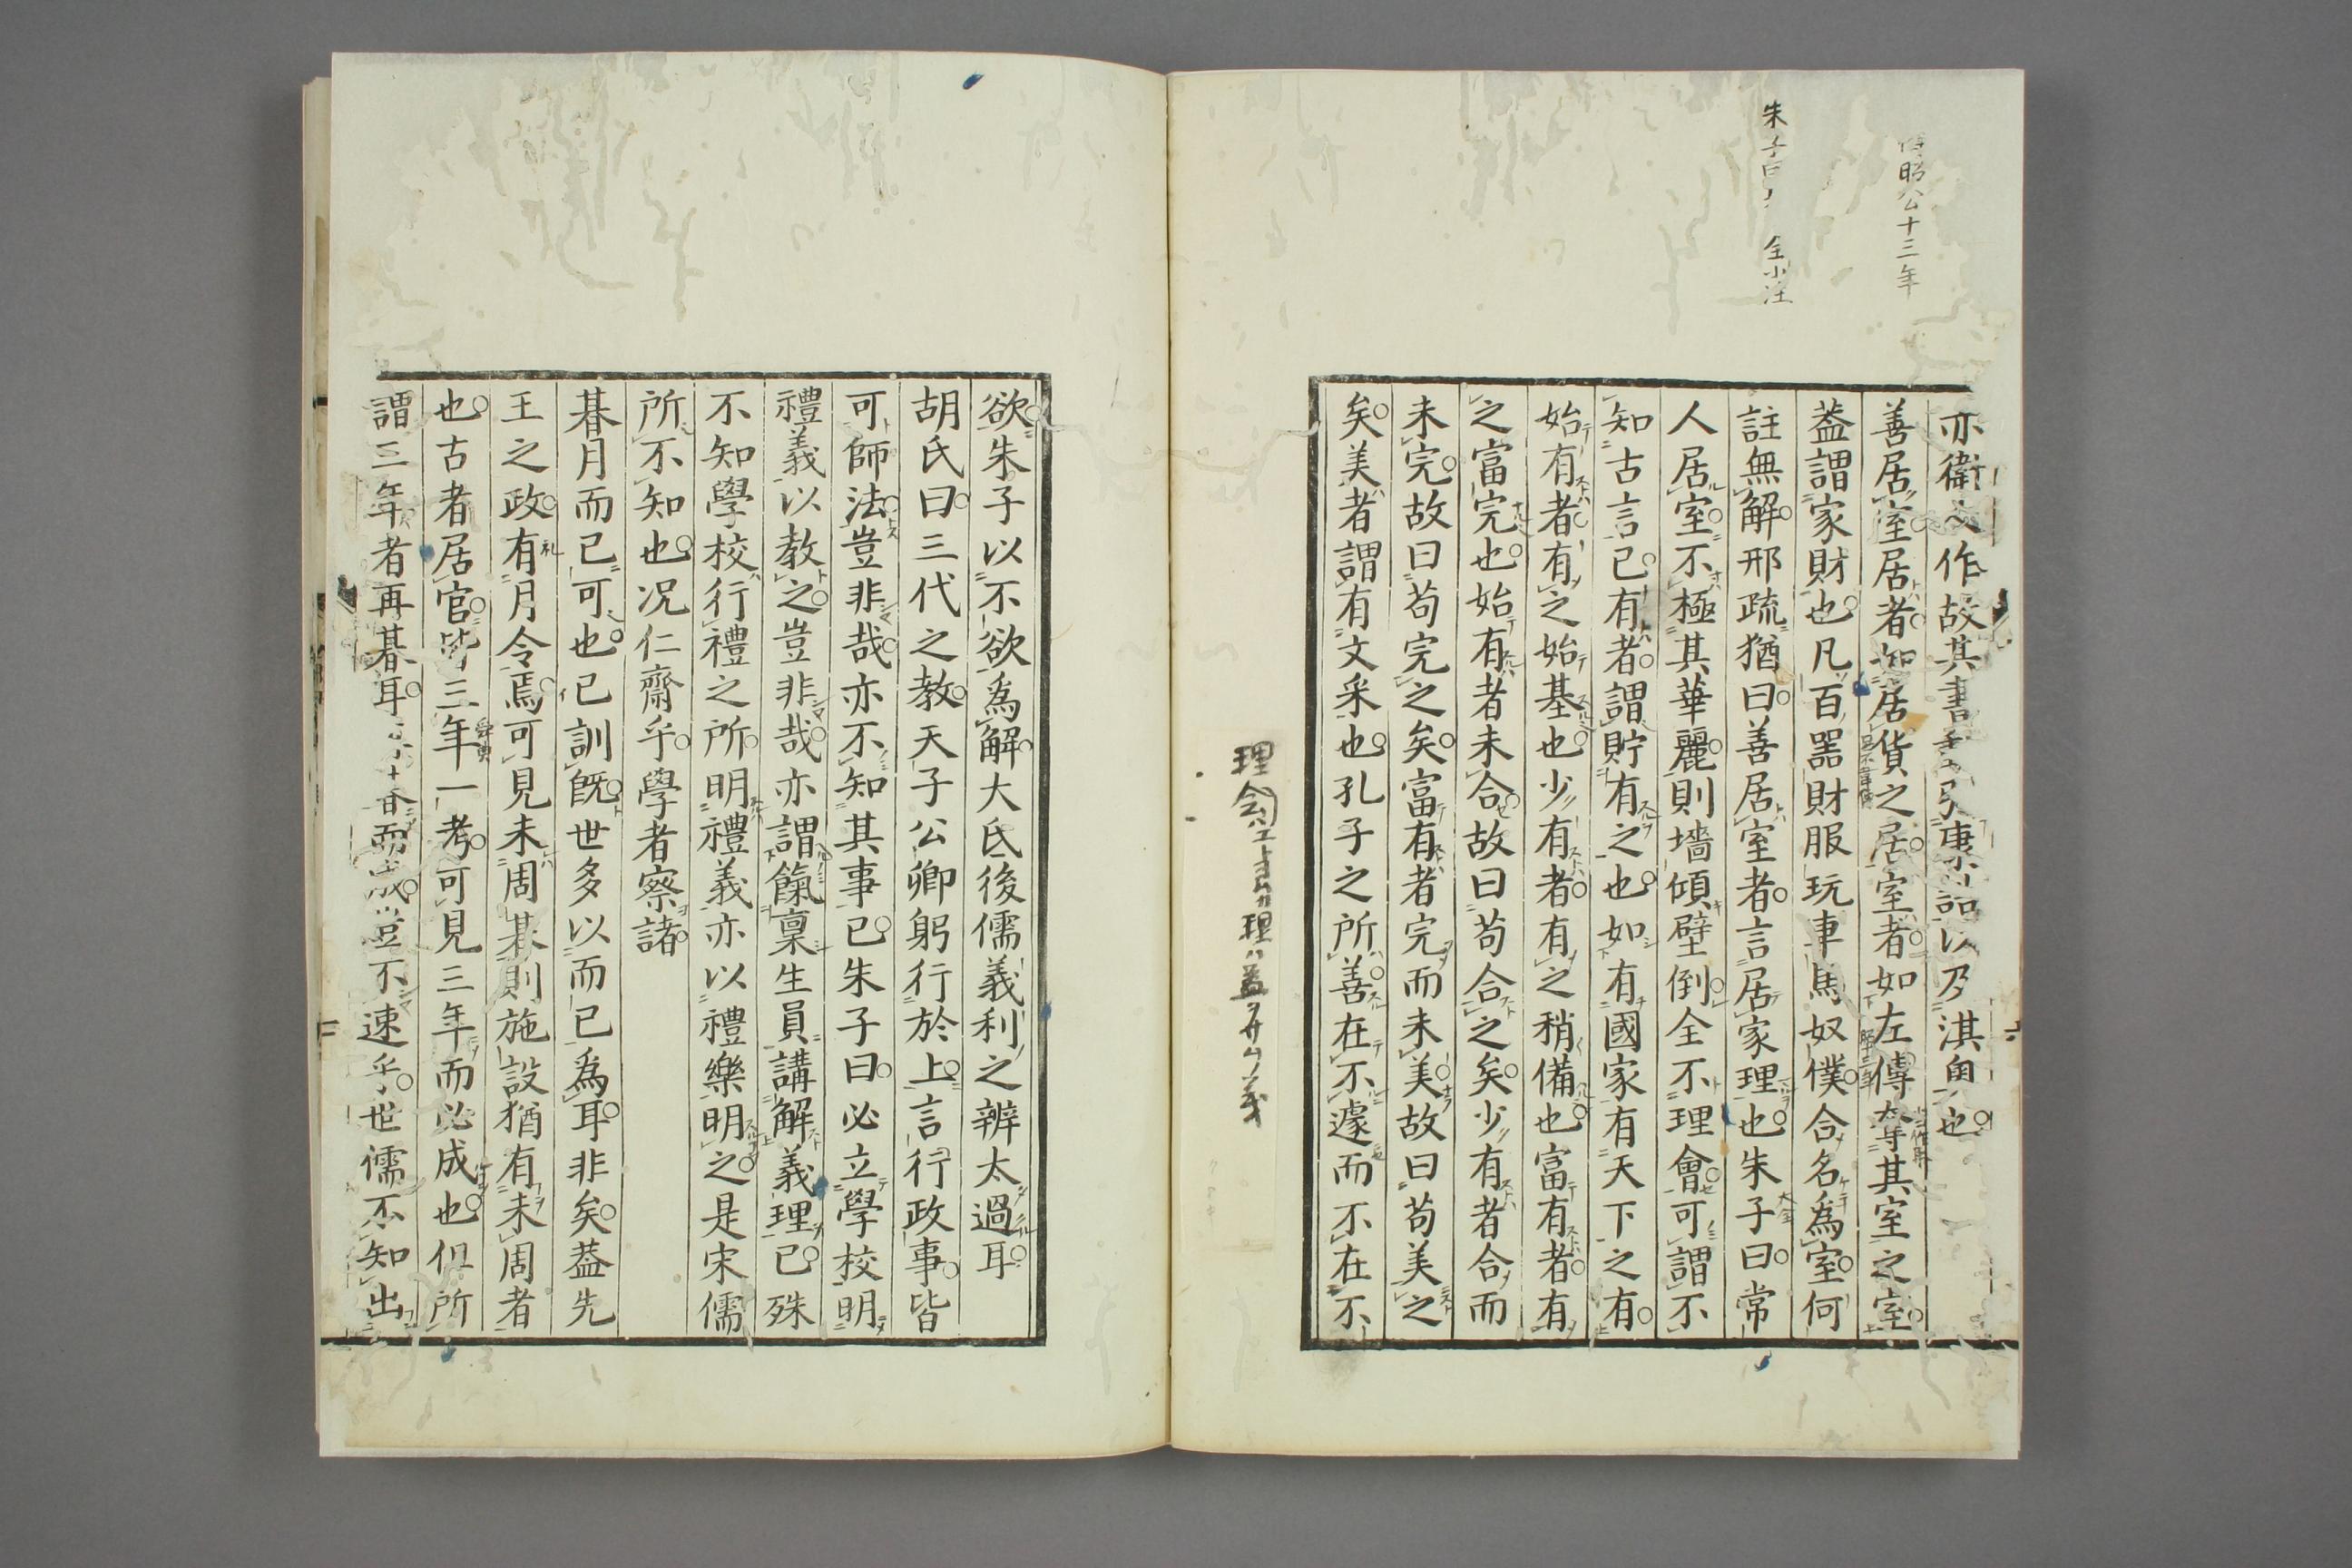 昭公十三年
朱子曰 全小注
亦衛 作故其書 引康誥以乃淇奧也
善居室居者如居貨之居室者如左傳奪其室之室
蓋謂家財也凡百器財服玩車馬奴僕合名爲室何
註無解邢疏猶曰善居室者言居家理也朱子曰常
人居室不極其華麗則墻傾壁倒全不理會可謂不
知古言已有者謂貯有之也如有國家有天下之有
始有者有之始基也少有者有之稍備也富有者有
之富完也始有者未合故曰苟合之矣少有者合而
未完故曰苟完之矣富有者完而未美故曰苟美之
矣美者謂有文采也孔子之所善在不遽而不在不
欲朱子以不欲爲解大氐後儒義利之辨太過耳
胡氏曰三代之教天子公卿躬行於上言行政事皆
可師法豈非哉亦不知其事已朱子曰必立學校明
禮義以教之豈非哉亦謂餼稟生員講解義理已殊
不知學校行禮之所明禮義亦以禮樂明之是宋儒
所不知也况仁齋乎學者察諸
朞月而已可也已訓既世多以而已爲耳非矣蓋先
王之政有月令焉可見未周朞則施設猶有未周者
也古者居官皆三年一考可見三年而必成也但所
謂三年者再朞耳 而成豈不速乎世儒不知出